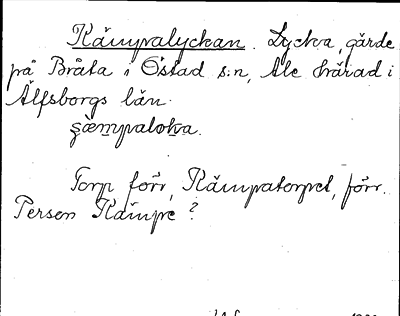 Kämpalyckan. Lycka, gärde
på Bråta i Östad s:n, Ale härad i
Älfsborgs län.
şœ̀mpalok̠a.
Torp förr, Kämpatorpet, förr.
Person Kämpe?